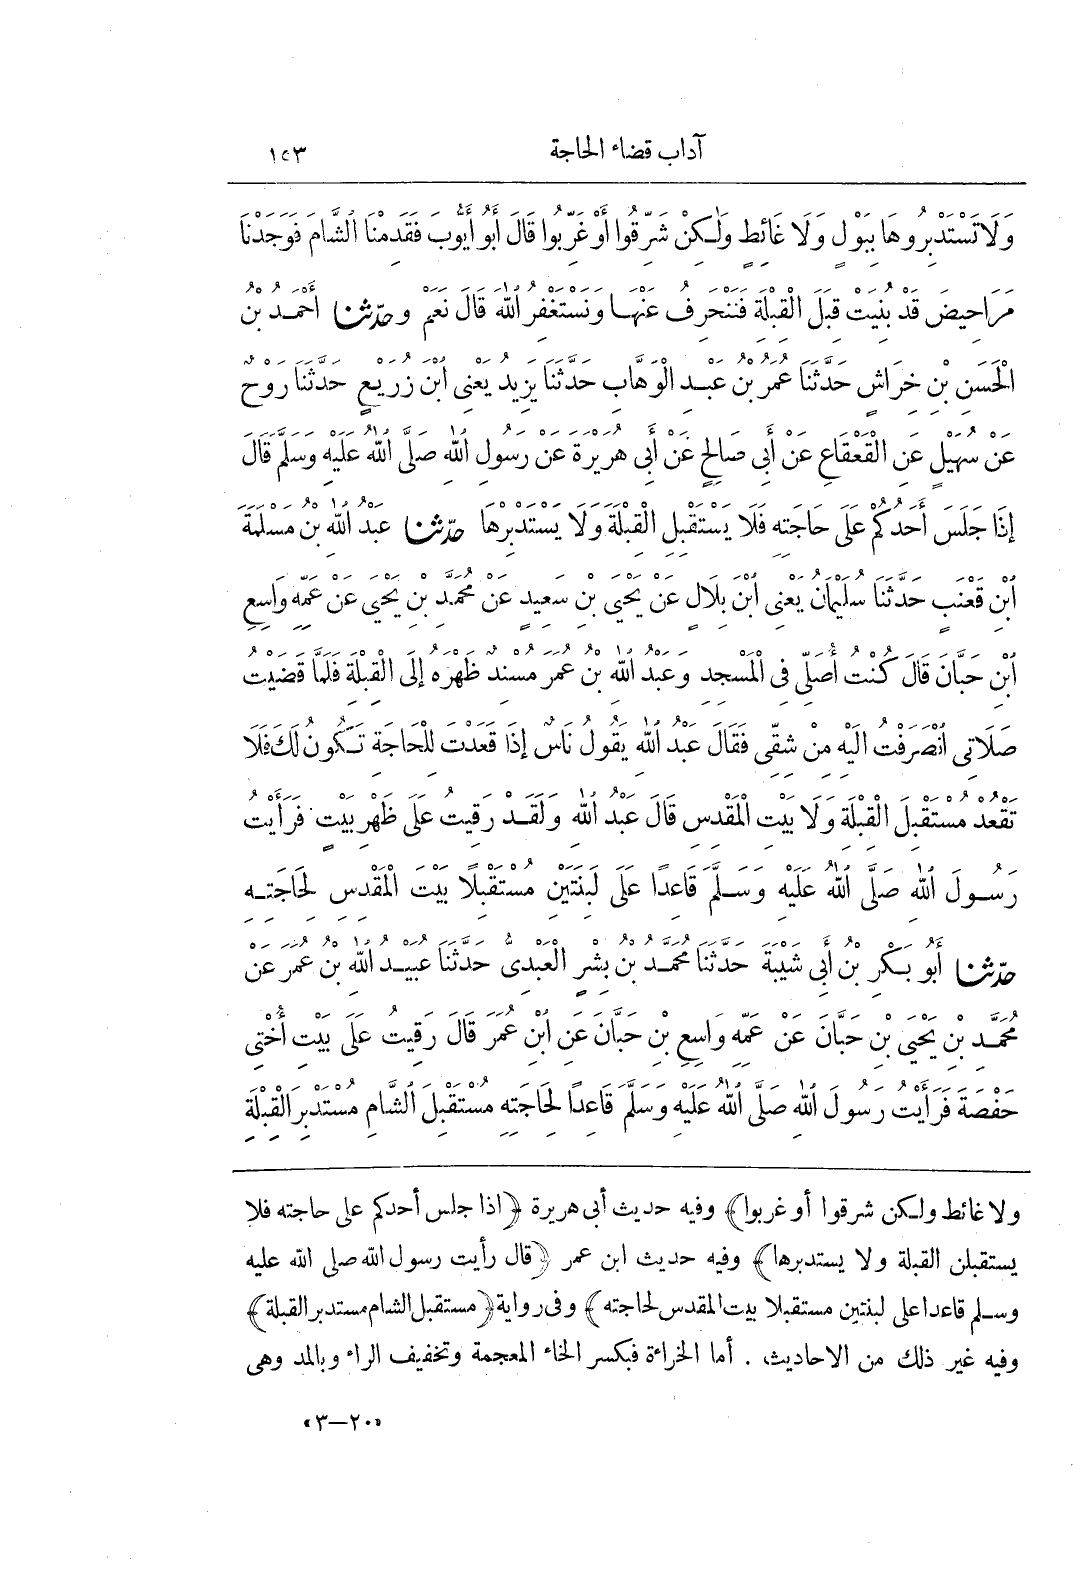 آداب قضاء الحاجة ١٥٣
وَلَا تَسْتَدْبِرُوهَا بِبَوْلٍ وَلَا غَائِطٍ وَلٰكِنْ شَرِّقُوا أَوْ غَرِّبُوا قَالَ أَبُو أَيُّوبَ فَقَدِمْنَا الشَّامَ فَوَجَدْنَا
مَرَاحِيضَ قَدْ بُنِيَتْ قِبَلَ الْقِبْلَةِ فَنَنْحَرِفُ عَنْهَا وَنَسْتَغْفِرُ اللّٰهَ قَالَ نَعَمْ و حدّثنا أَحْمَدُ بْنُ
الْحَسَنِ بْنِ خِرَاشٍ حَدَّثَنَا عُمَرُ بْنُ عَبْدِ الْوَهَّابِ حَدَّثَنَا يَزِيدُ يَعْنِى ابْنَ زُرَيْعٍ حَدَّثَنَا رَوْحٌ
عَنْ سُهَيْلٍ عَنِ الْقَعْقَاعِ عَنْ أَبِى صَالِحٍ عَنْ أَبِى هُرَيْرَةَ عَنْ رَسُولِ اللّٰهِ صَلَّى اللّٰهُ عَلَيْهِ وَسَلَّمَ قَالَ
إِذَا جَلَسَ أَحَدُكُمْ عَلَى حَاجَتِهِ فَلَا يَسْتَقْبِلِ الْقِبْلَةَ وَلَا يَسْتَدْبِرْهَا حدّثنا عَبْدُ اللّٰهِ بْنُ مَسْلَمَةَ
ابْنِ قَعْنَبٍ حَدَّثَنَا سُلَيْمَانُ يَعْنِى ابْنَ بِلَالٍ عَنْ يَحْيَى بْنِ سَعِيدٍ عَنْ مُحَمَّدِ بْنِ يَحْيَى عَنْ عَمِّهِ وَاسِعِ
ابْنِ حَبَّانَ قَالَ كُنْتُ أُصَلِّى فِى الْمَسْجِدِ وَعَبْدُ اللّٰهِ بْنُ عُمَرَ مُسْنِدٌ ظَهْرَهُ إِلَى الْقِبْلَةِ فَلَمَّا قَضَيْتُ
صَلَاتِى انْصَرَفْتُ الَيْهِ مِنْ شِقِّى فَقَالَ عَبْدُ اللّٰهِ يَقُولُ نَاسٌ إِذَا قَعَدْتَ لِلْحَاجَةِ تَكُونُ لَكَ فَلَا
تَقْعُدْ مُسْتَقْبِلَ الْقِبْلَةِ وَلَا بَيْتِ الْمَقْدِسِ قَالَ عَبْدُ اللّٰهِ وَلَقَدْ رَقِيتُ عَلَى ظَهْرِ بَيْتٍ فَرَأَيْتُ
رَسُولَ اللّٰهِ صَلَّى اللّٰهُ عَلَيْهِ وَسَلَّمَ قَاعِدًا عَلَى لَبِنَتَيْنِ مُسْتَقْبِلًا بَيْتَ الْمَقْدِسِ لِحَاجَتِهِ
حدّثنا أَبُو بَكْرِ بْنُ أَبِى شَيْبَةَ حَدَّثَنَا مُحَمَّدُ بْنُ بِشْرٍ الْعَبْدِىُّ حَدَّثَنَا عُبَيْدُ اللّٰهِ بْنُ عُمَرَ عَنْ
مُحَمَّدِ بْنِ يَحْيَى بْنِ حَبَّانَ عَنْ عَمِّهِ وَاسِعِ بْنِ حَبَّانَ عَنِ ابْنِ عُمَرَ قَالَ رَقِيتُ عَلَى بَيْتِ أُخْتِى
حَفْصَةَ فَرَأَيْتُ رَسُولَ اللّٰهِ صَلَّى اللّٰهُ عَلَيْهِ وَسَلَّمَ قَاعِدًا لِحَاجَتِهِ مُسْتَقْبِلَ الشَّامِ مُسْتَدْبِرَ الْقِبْلَةِ
ولا غائط ولكن شرقوا أو غربوا﴾ وفيه حديث أبى هريرة ﴿اذا جلس أحدكم على حاجته فلا
يستقبلن القبلة ولا يستدبرها﴾ وفيه حديث ابن عمر ﴿قال رأيت رسول الله صلى الله عليه
وسلم قاعدا على لبنتين مستقبلا بيت المقدس لحاجته﴾ وفى رواية ﴿مستقبل الشام مستدبر القبلة﴾
وفيه غير ذلك من الاحاديث . أما الخراءة فبكسر الخاء المعجمة وتخفيف الراء وبالمد وهى
«٢٠—٣»